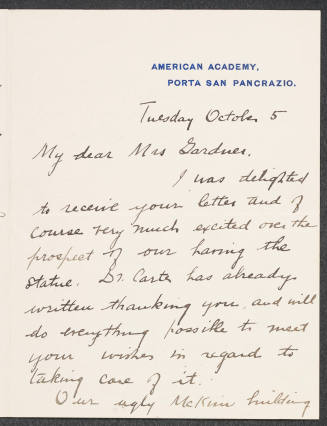 AMERICAN ACADEMY,
PORTA SAN PANCRAZIO.
Tuesday October 5
My dear Mrs Gardner,
I was delighted
to receive your letter and of
course very much excited over the
prospect of our having the
statue. Dr. Carter has already
written thanking you, and will
do everything possible to meet
your wishes in regard to
taking care of it.
Our ugly McKim building